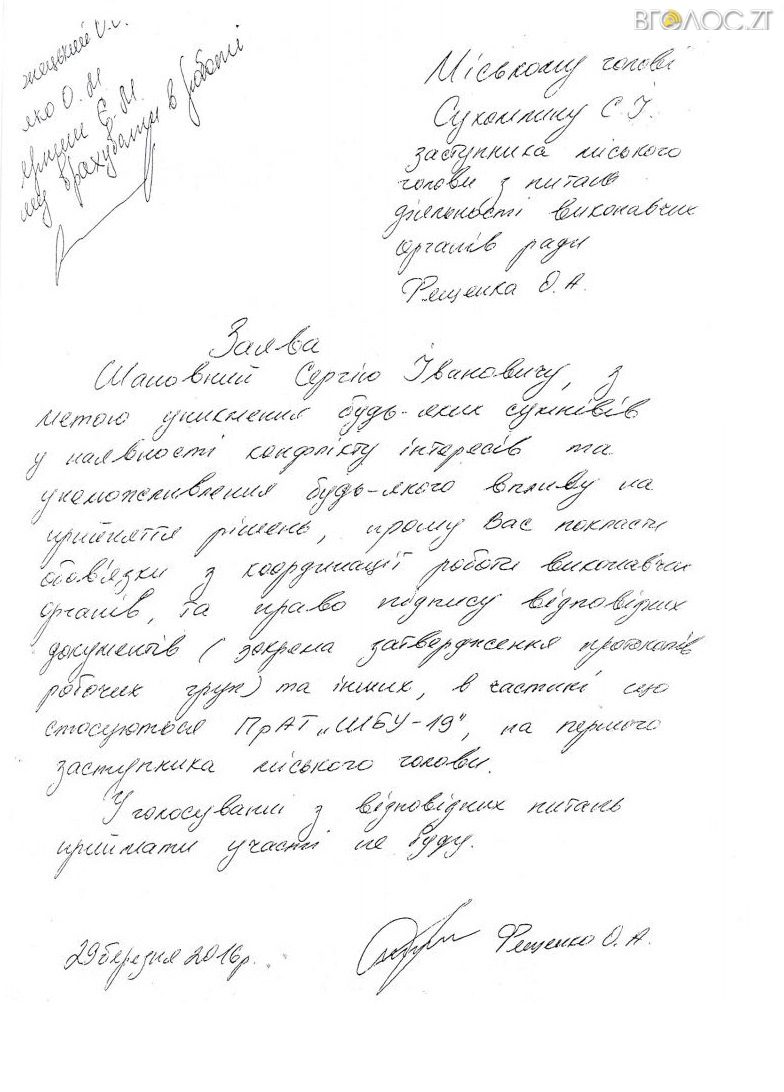 ВГОЛОС.ZT
О. М
Є. М.
врахувати в роботі
Міському голові
Сухомлину С. І.
заступника міського
голови з питань
діяльності виконавчих
органів ради
Фещенка О. А.
Заява
Шановний Сергію Івановичу, з
метою уникнення будь-яких сумнівів
у наявності конфлікту інтересів та
унеможливлення будь-якого впливу на
прийняття рішень, прошу Вас покласти
обов'язки з координації роботи виконавчих
органів, та право підпису відповідних
документів (зокрема затвердження протоколів
робочих груп) та інших, в частині що
стосуються ПрАТ „ШБУ-19", на першого
заступника міського голови.
У голосуванні з відповідних питань
приймати участі не буду.
29 березня 2016р.
Фещенко О. А.